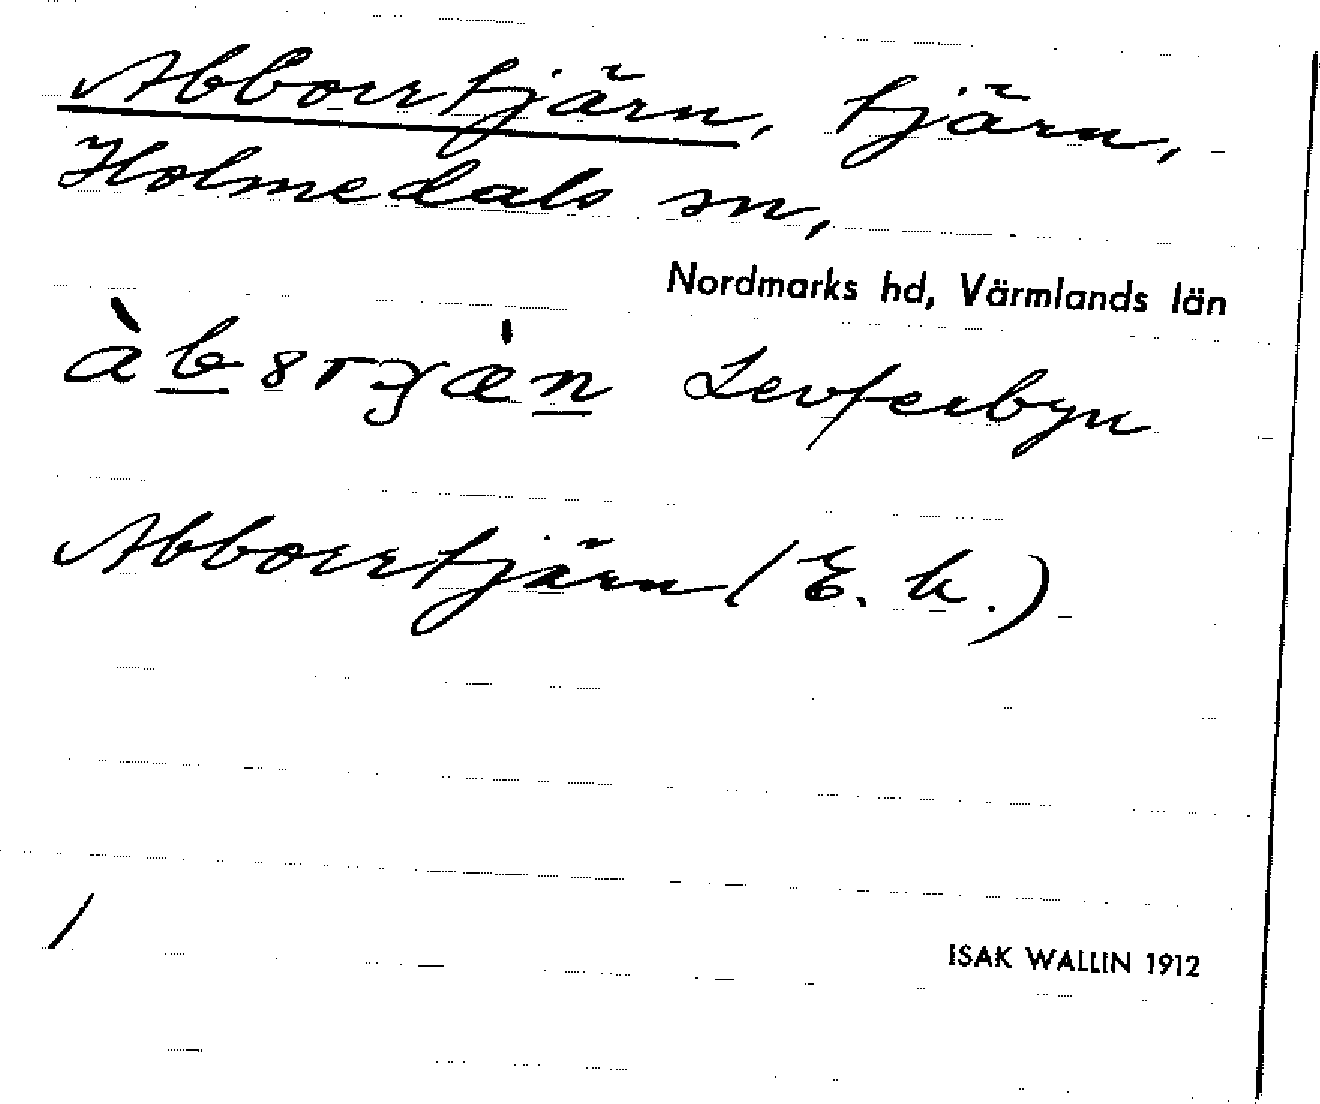 Abborrtjärn, tjärn,
Holmedals sn,
Nordmarks hd, Värmlands län
Abborrtjärn (E. k.)
/
ISAK WALLIN 1912